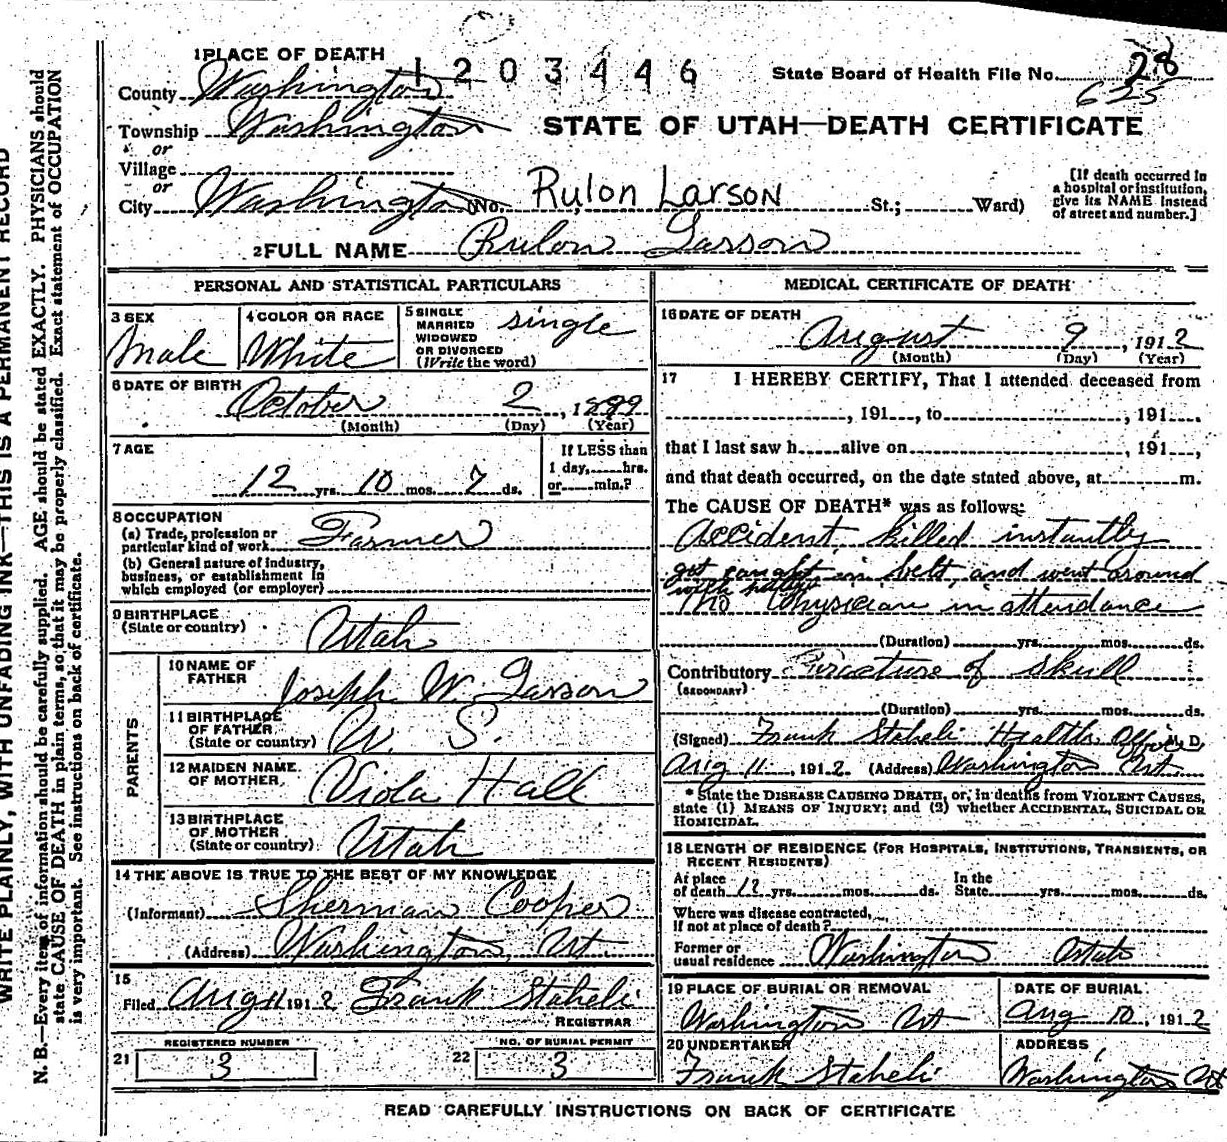 WRITE PLAINLY, WITH UNFADING INK—THIS IS A PERMANENT RECORD
N. B.—Every item of information should be carefully supplied. AGE should be stated EXACTLY. PHYSICIANS should
state CAUSE OF DEATH in plain terms, so that it may be properly classified. Exact statement of OCCUPATION
is very important. See instructions on back of certificate.
1 PLACE OF DEATH
1203446
State Board of Health File No. 28
625
County Washington
Township Washington
or
STATE OF UTAH—DEATH CERTIFICATE
Village
or
City Washington (No. Rulon Larson St.; Ward)
[If death occurred in
a hospital or institution,
give its NAME instead
of street and number.]
2 FULL NAME Rulon Larson
PERSONAL AND STATISTICAL PARTICULARS
3 SEX
Male
4 COLOR OR RACE
White
5 SINGLE
MARRIED
WIDOWED
OR DIVORCED
(Write the word)
single
6 DATE OF BIRTH
October 2, 1899
(Month) (Day) (Year)
7 AGE
12 yrs. 10 mos. 7 ds.
If LESS than
1 day, hrs.
or min.?
8 OCCUPATION
(a) Trade, profession or
particular kind of work Farmer
(b) General nature of industry,
business, or establishment in
which employed (or employer)
9 BIRTHPLACE
(State or country) Utah
PARENTS
10 NAME OF
FATHER Joseph W. Larson
11 BIRTHPLACE
OF FATHER
(State or country) U. S.
12 MAIDEN NAME
OF MOTHER Viola Hall
13 BIRTHPLACE
OF MOTHER
(State or country) Utah
14 THE ABOVE IS TRUE TO THE BEST OF MY KNOWLEDGE
(Informant) Sherman Cooper
(Address) Washington, Ut
15
Filed Aug 11 1912 Frank Staheli
REGISTRAR
REGISTERED NUMBER
21 3
NO. OF BURIAL PERMIT
22 3
MEDICAL CERTIFICATE OF DEATH
16 DATE OF DEATH
August 9, 1912
(Month) (Day) (Year)
17 I HEREBY CERTIFY, That I attended deceased from
, 191 , to , 191 .
that I last saw h alive on , 191 ,
and that death occurred, on the date stated above, at m.
The CAUSE OF DEATH* was as follows:
Accident, killed instantly
got caught in belt, and went around
with pulley
no Physician in attendance
(Duration) yrs. mos. ds.
Contributory Fracture of skull
(SECONDARY)
(Duration) yrs. mos. ds.
(Signed) Frank Staheli Health Officer, M. D.
Aug 11, 1912. (Address) Washington Ut
* State the DISEASE CAUSING DEATH, or, in deaths from VIOLENT CAUSES,
state (1) MEANS OF INJURY; and (2) whether ACCIDENTAL, SUICIDAL OR
HOMICIDAL.
18 LENGTH OF RESIDENCE (FOR HOSPITALS, INSTITUTIONS, TRANSIENTS, OR
RECENT RESIDENTS)
At place
of death 12 yrs. mos. ds. In the
State yrs. mos. ds.
Where was disease contracted,
If not at place of death?
Former or
usual residence Washington Utah
19 PLACE OF BURIAL OR REMOVAL
Washington Ut
DATE OF BURIAL
Aug 10, 1912
20 UNDERTAKER
Frank Staheli
ADDRESS
Washington Ut
READ CAREFULLY INSTRUCTIONS ON BACK OF CERTIFICATE